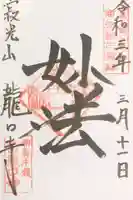 令和三年
三月十一日
妙法
寂光山
龍口寺